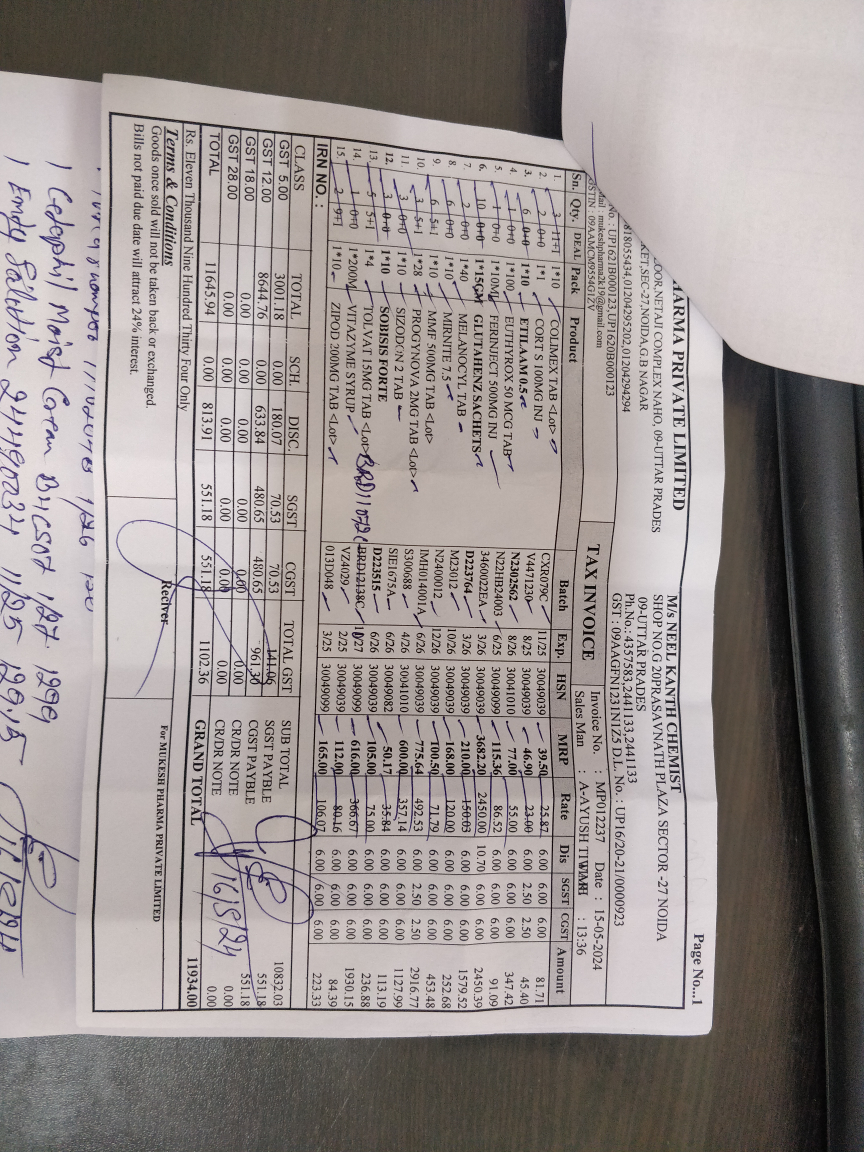 Page No...1
HARMA PRIVATE LIMITED
OOR,NETAJI COMPLEX NAHO, 09-UTTAR PRADES
KET,SEC-27,NOIDA,G.B NAGAR
818055434,01204295202,01204294294
No. : UP1621B000123,UP1620B000123
mail : mukeshpharma2k19@gmail.com
GSTIN : 09AAMCM9554G1ZV
M/s NEEL KANTH CHEMIST
SHOP NO.G 20PRASAVNATH PLAZA SECTOR -27 NOIDA
09-UTTAR PRADES
Ph.No.:4357583,2441133,2441133
GST : 09AAGFN1231N1Z5 D.L. No. : UP16/20-21/0000923
TAX INVOICE
Invoice No. : MP012237 Date : 15-05-2024
Sales Man : A-AYUSH TIWARI : 13:36
Sn. Qty. DEAL Pack Product Batch Exp. HSN MRP Rate Dis SGST CGST Amount
1. 3 11+1 1*10 COLIMEX TAB <Lot> CXR079C 11/25 30049039 39.50 25.87 6.00 6.00 6.00 81.71
2. 2 0+0 1*1 CORT S 100MG INJ V4471230 8/25 30049039 46.90 23.00 6.00 2.50 2.50 45.40
3. 6 0+0 1*10 ETILAAM 0.5 N2302562 8/26 30041010 77.00 55.00 6.00 6.00 6.00 347.42
4. 1 0+0 1*100 EUTHYROX 50 MCG TAB N22HB24003 6/25 30049099 115.36 86.52 6.00 6.00 6.00 91.09
5. 1 0+0 1*10ML FERINJECT 500MG INJ 3460022EA 3/26 30049039 3682.20 2450.00 10.70 6.00 6.00 2450.39
6. 10 0+0 1*15GM GLUTAHENZ SACHETS D223764 3/26 30049039 210.00 150.03 6.00 6.00 6.00 1579.52
7. 2 0+0 1*40 MELANOCYL TAB M23012 10/26 30049039 168.00 120.00 6.00 6.00 6.00 252.68
8. 6 0+0 1*10 MIRNITE 7.5 N2400012 12/26 30049039 100.50 71.79 6.00 6.00 6.00 453.48
9. 6 5+1 1*10 MMF 500MG TAB <Lot> IMH014001A 6/26 30049039 775.64 492.53 6.00 2.50 2.50 2916.77
10. 3 5+1 1*28 PROGYNOVA 2MG TAB <Lot> S300688 4/26 30041010 600.00 357.14 6.00 6.00 6.00 1127.99
11. 3 0+0 1*10 SIZODON 2 TAB SIE1675A 6/26 30049082 50.17 35.84 6.00 6.00 6.00 113.19
12. 3 0+0 1*10 SOBISIS FORTE D223515 6/26 30049039 105.00 75.00 6.00 6.00 6.00 236.88
13. 5 5+1 1*4 TOLVAT 15MG TAB <Lot> BRD11072C BRD12138C 10/27 30049099 616.00 366.67 6.00 6.00 6.00 1930.15
14. 1 0+0 1*200M VITAZYME SYRUP VZ4029 2/25 30049039 112.00 80.16 6.00 6.00 6.00 84.39
15. 2 9+1 1*10 ZIPOD 200MG TAB <Lot> 013D048 3/25 30049099 165.00 106.07 6.00 6.00 6.00 223.33
IRN NO. :
CLASS TOTAL SCH. DISC. SGST CGST TOTAL GST
GST 5.00 3001.18 0.00 180.07 70.53 70.53 141.06
GST 12.00 8644.76 0.00 633.84 480.65 480.65 961.30
GST 18.00 0.00 0.00 0.00 0.00 0.00 0.00
GST 28.00 0.00 0.00 0.00 0.00 0.00 0.00
TOTAL 11645.94 0.00 813.91 551.18 551.18 1102.36
SUB TOTAL 10832.03
SGST PAYBLE 551.18
CGST PAYBLE 551.18
CR/DR NOTE 0.00
CR/DR NOTE 0.00
GRAND TOTAL 11934.00
16/5/24
Rs. Eleven Thousand Nine Hundred Thirty Four Only
Terms & Conditions
Goods once sold will not be taken back or exchanged.
Bills not paid due date will attract 24% interest.
Reciver
For MUKESH PHARMA PRIVATE LIMITED
1 Cetaphil Moist Cream 1/27 1299
1 Emdy Solution 24490034 11/25 129.15